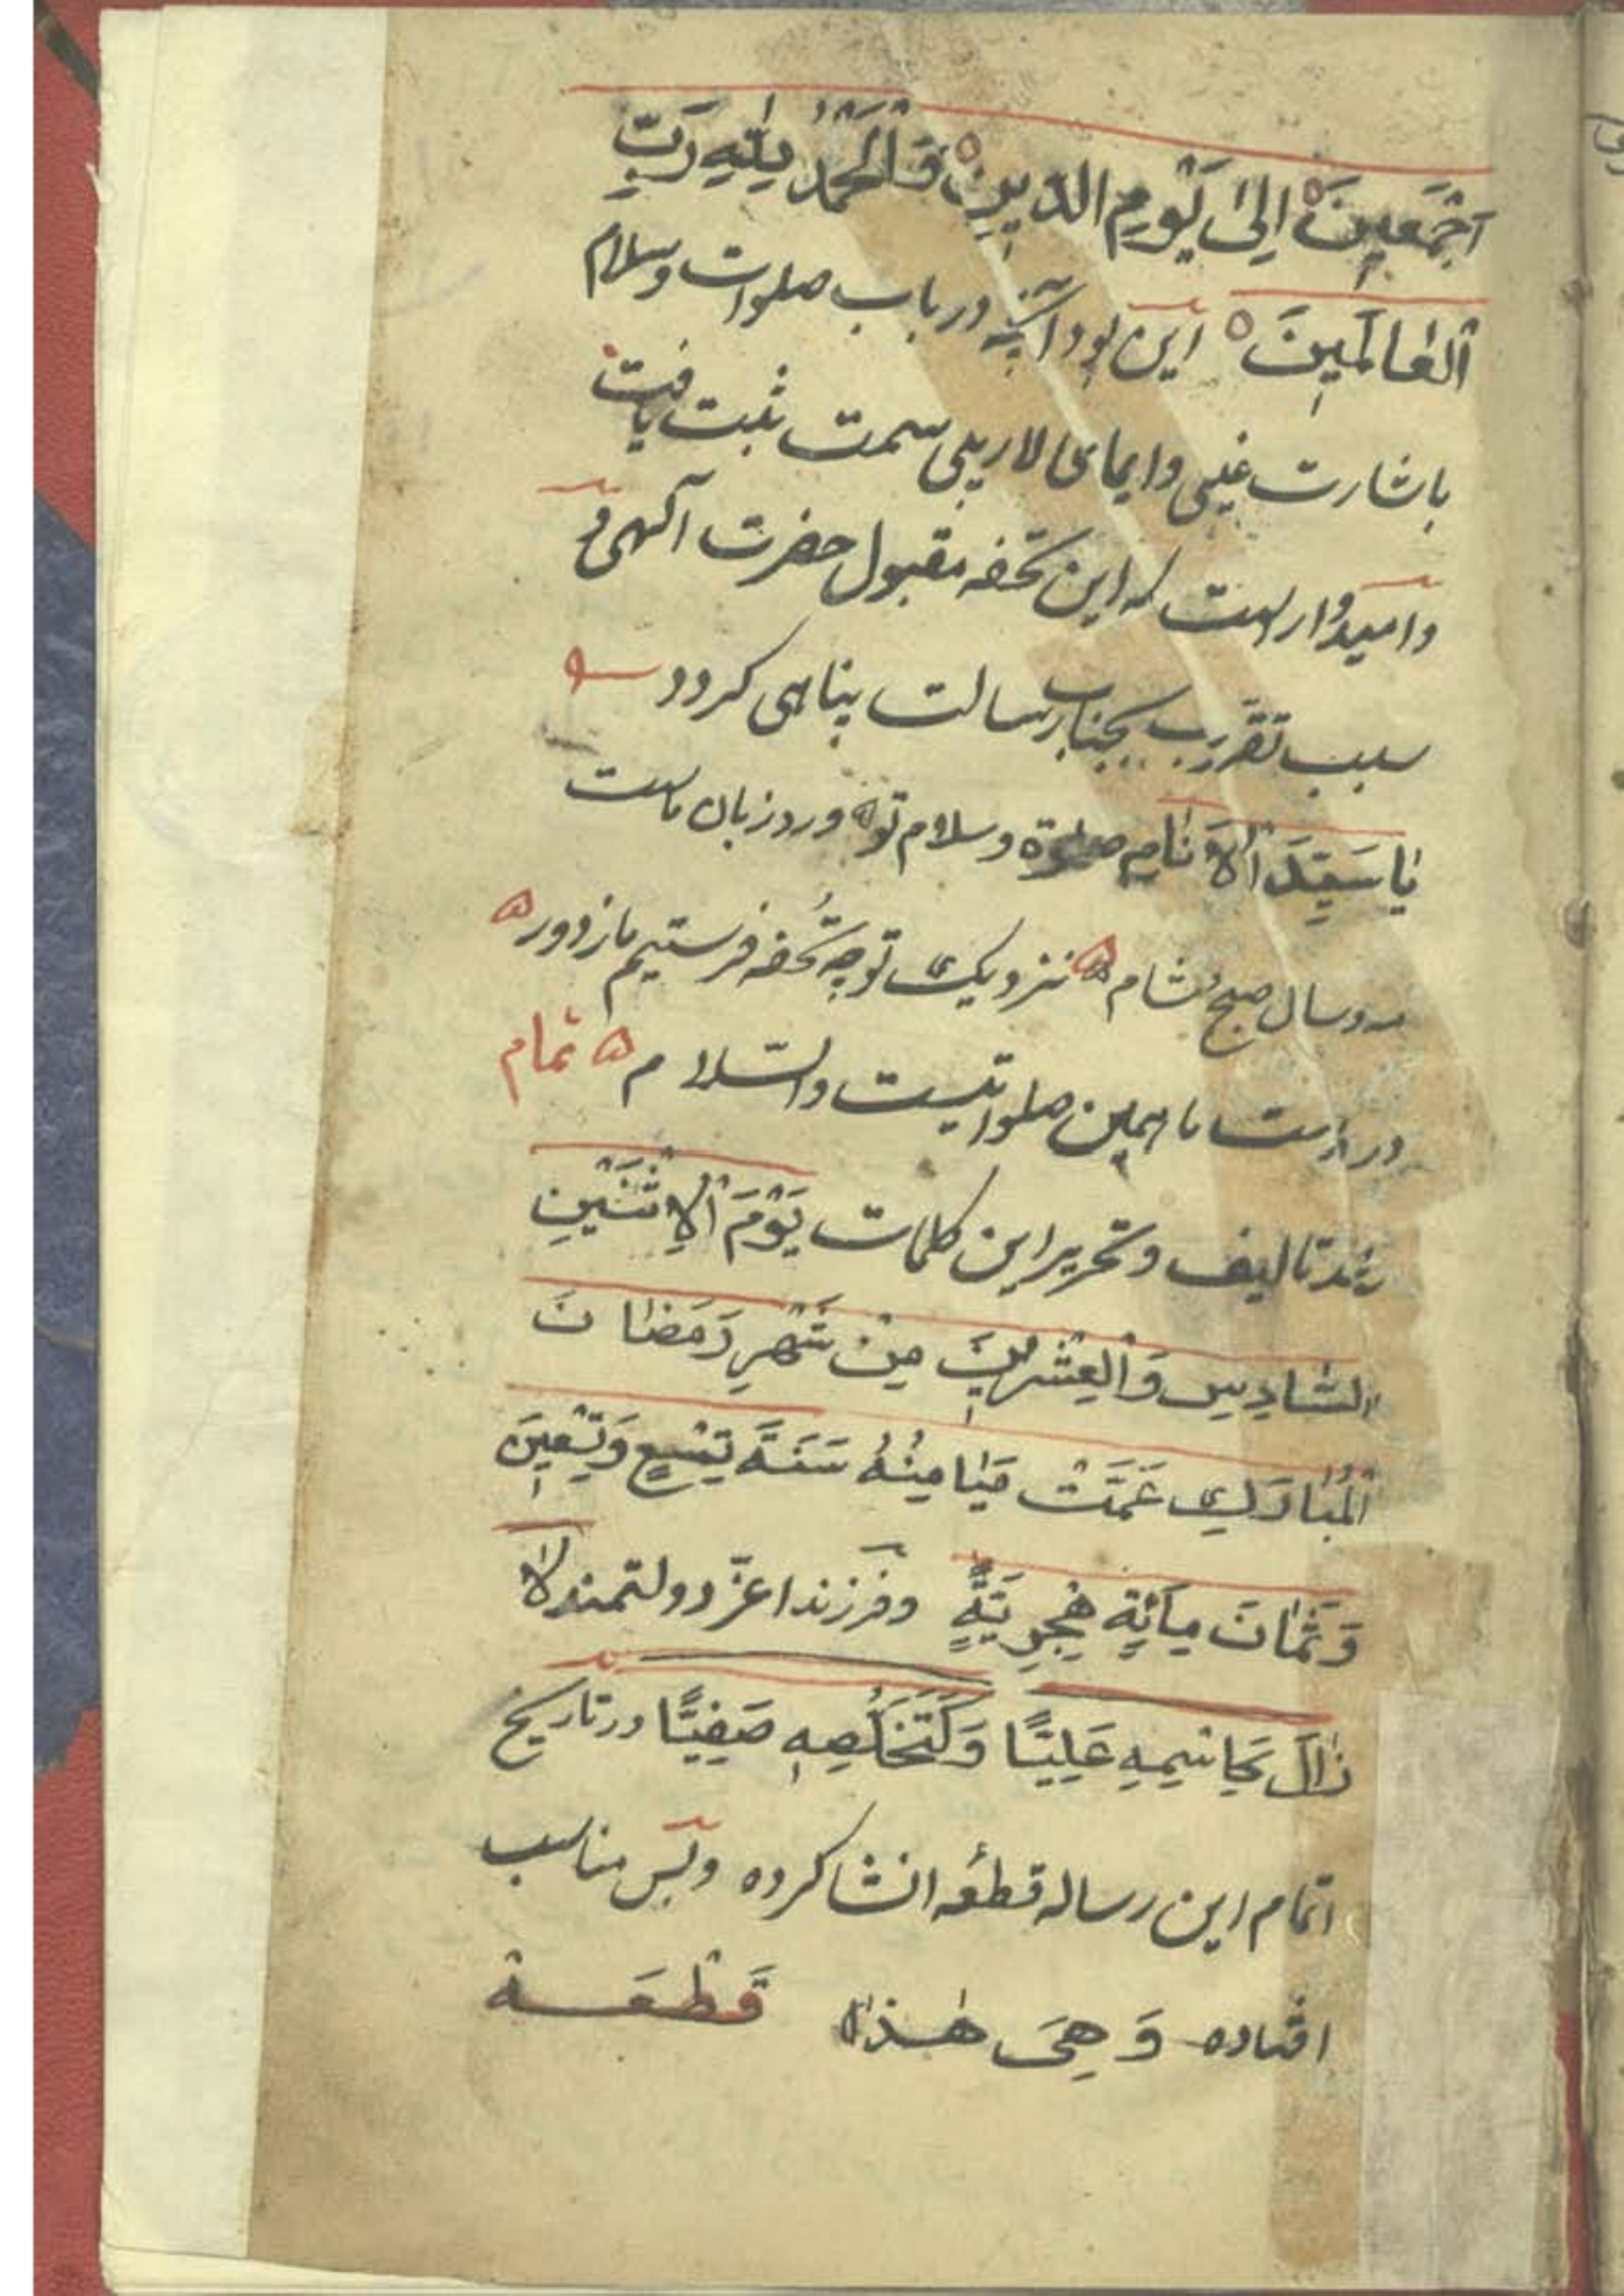 اَجْمَعِينَ اِلىٰ يَوْمِ الدّينِ وَالْحَمْدُ لِلّٰهِ رَبِّ
الْعَالَمِينَ این بود آنچه در باب صلوات و سلام
باشارت غیبی و ایمای لاریبی سمت ثبت یافت
و امیدوارست که این تحفه مقبول حضرت آلهی و
سبب تقرب بجناب رسالت پناهی کردد
یٰا سَیِّدَ الْاَنٰامِ صلوة و سلام تو ورد زبان ماست
مه و سال صبح و شام نزدیک تو چه تحفه فرستیم ما ز دور
در دست ما همین صلواتیست والسّلام تمام
شد تالیف و تحریر این کلمات يَوْمَ الْاِثْنَيْنِ
السّٰادِسِ وَالْعِشْرِينَ مِنْ شَهْرِ رَمَضٰانَ
الْمُبٰارَكِ عَمَّتْ مَيٰامِنُهُ سَنَةَ تِسْعٍ وَتِسْعِينَ
وَثَمٰانَ مِائَةٍ هِجْرِيَّةٍ و فرزند اعزّ دولتمند لاٰ
زٰالَ كَاسْمِهِ عَلِيًّا وَكَتَخَلُّصِهِ صَفِيًّا در تاریخ
اتمام این رساله قطعه انشا کرده و بس مناسب
افتاده وَهِيَ هٰذِهِ قَطْعَة